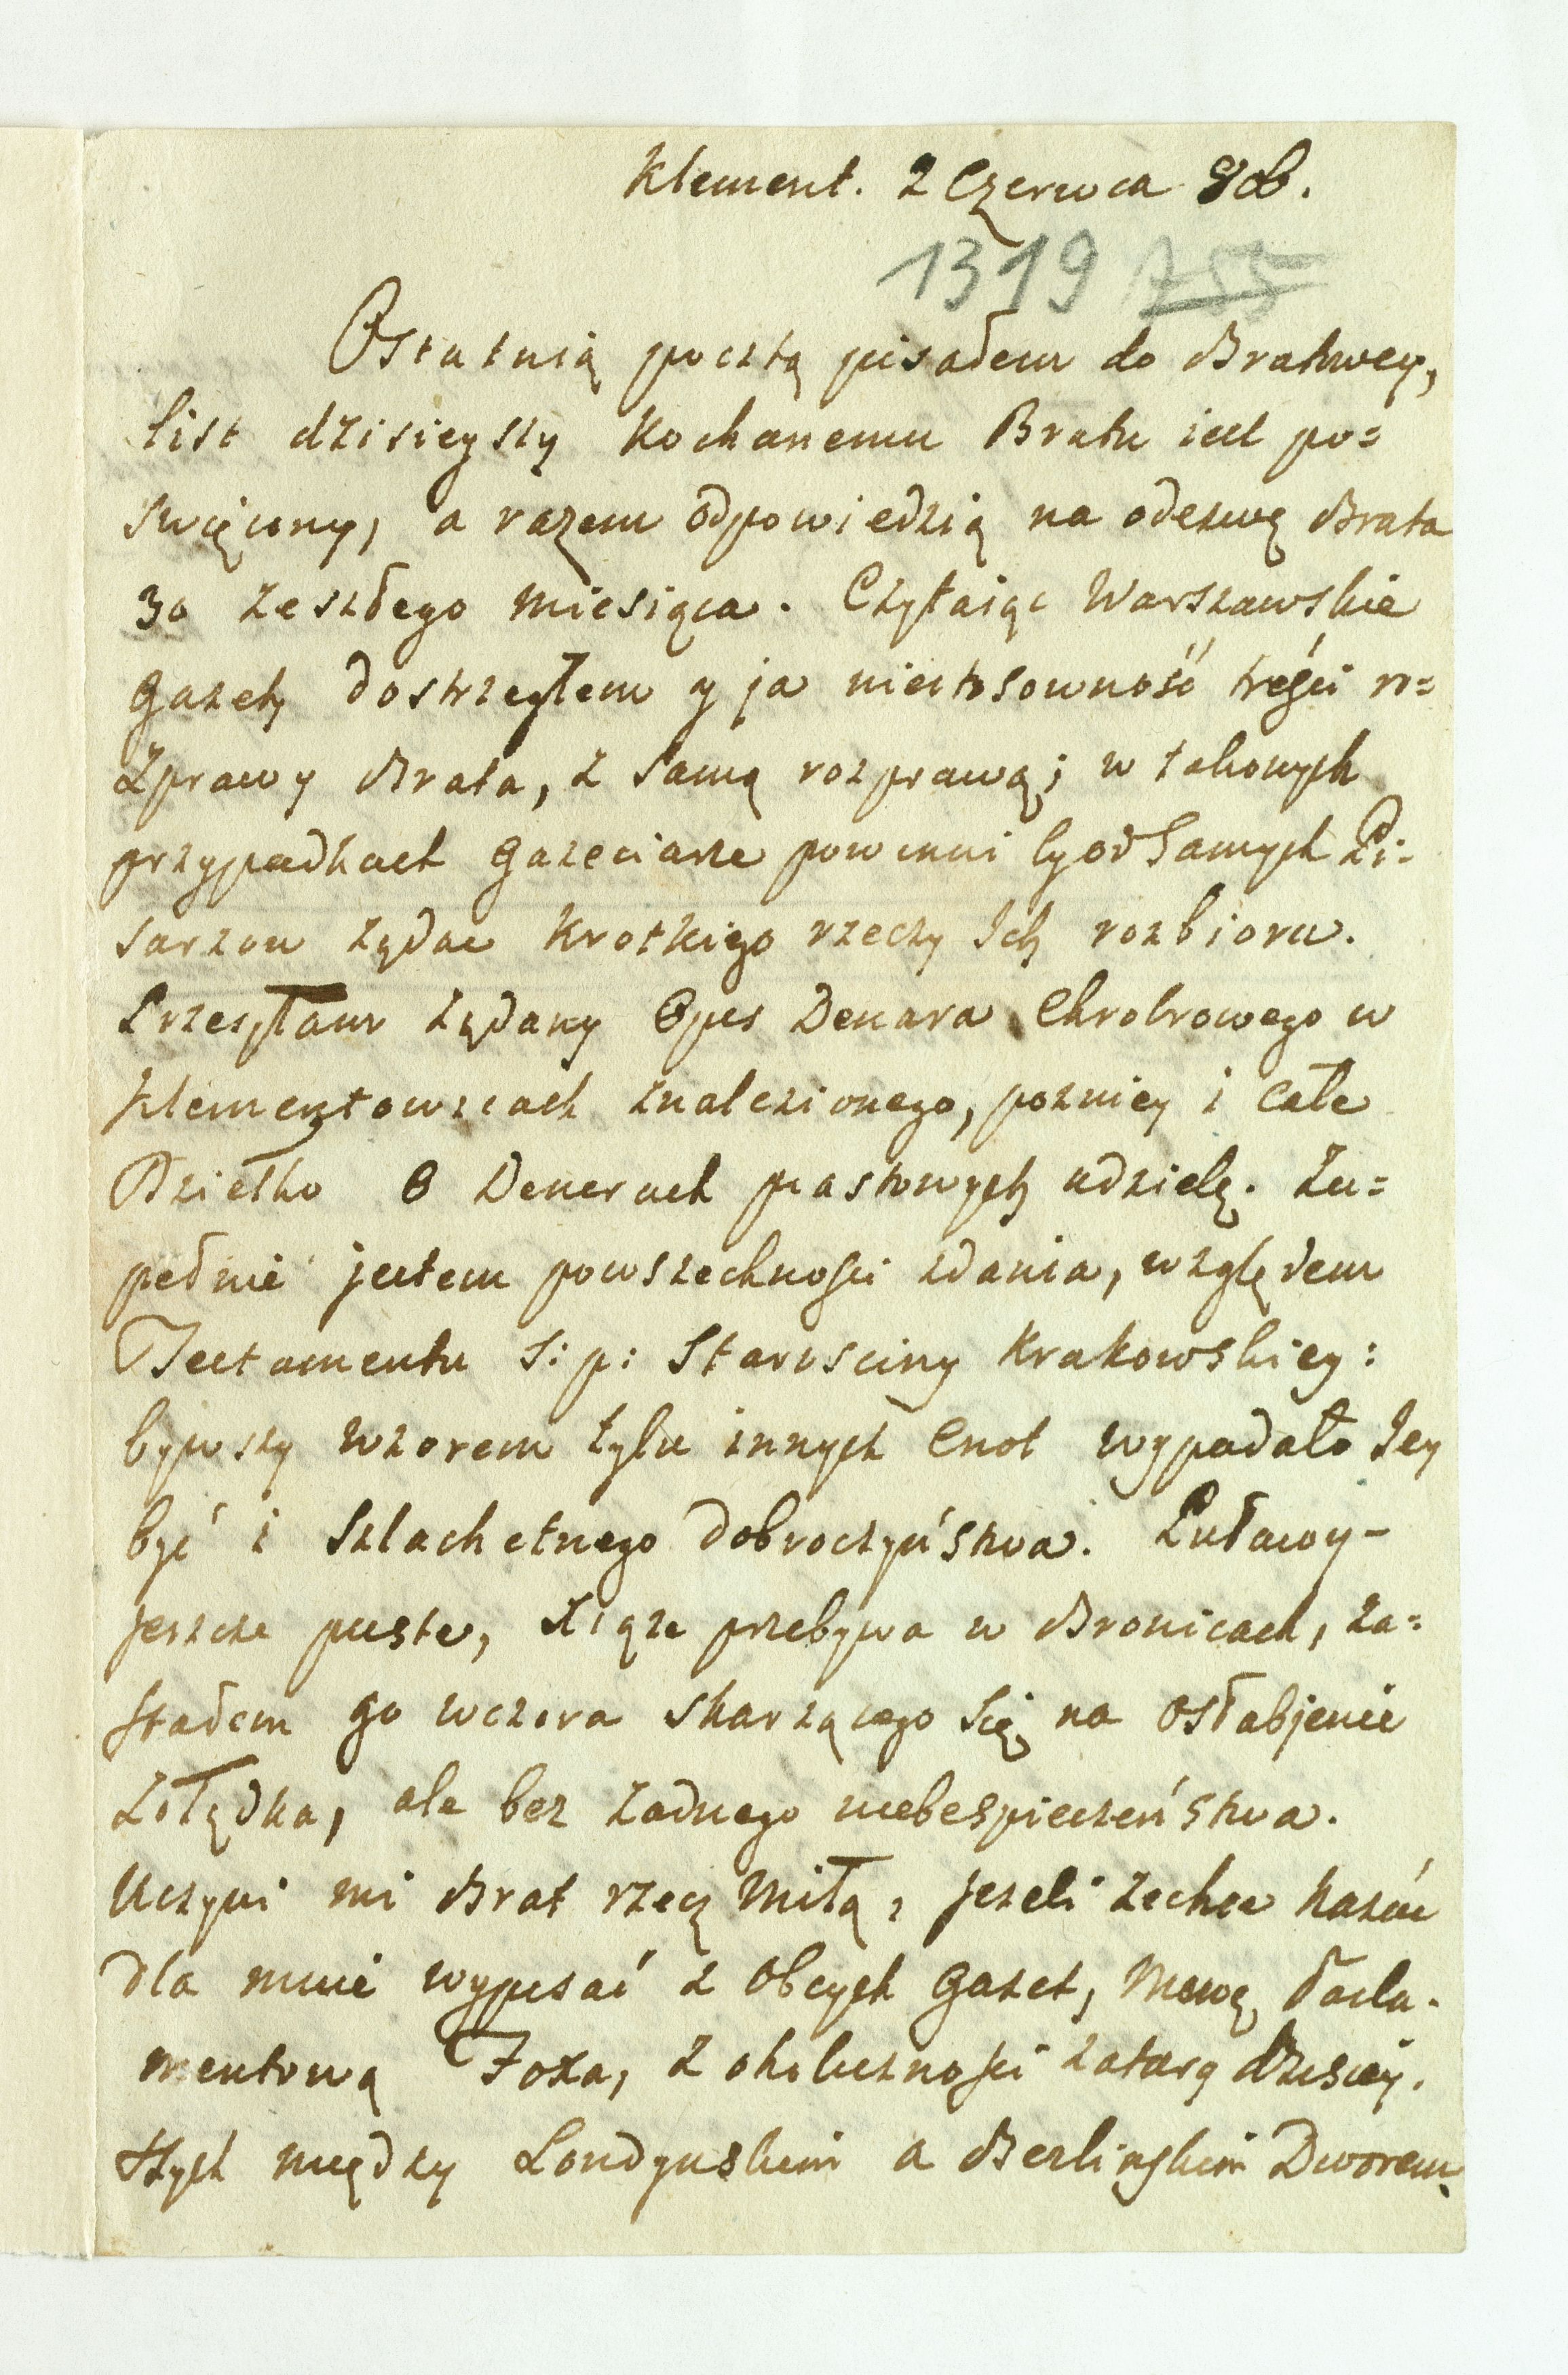 Klement. 2 Czerwca 806.
1319 755
Ostatnią pocztą pisałem do Bratowey,
list dzisieyszy Kochanemu Bratu iest po=
swięcony, a razem odpowiedzią na odezwę Brata
30 zeszłego miesiąca. Czytaiąc Warszawskie
gazety dostrzegłem y ja niestosowność treści ro=
zprawy Brata, z samą rozprawą; w takowych
przypadkach gazeciarze powinni by od samych Pi=
sarzow żądac krotkiego rzeczy Ich rozbioru.
Przesyłam żądany Opis Denara Chrobrowego w
Klementowicach znalezionego, pozniey i całe
Dziełko O Denarach piastowych udzielę. Zu=
pełnie jestem powszechności zdania, względem
Testamentu S: p: Starosciny Krakowskiey:
bywszy wzorem tylu innych Cnot wypadało Jey
być i szlachetnego dobroczyństwa. Puławy-
jeszcze puste, Xiąze przebywa w Bronicach, za=
stałem go wczora skarzącego się na osłabjenie
żołądka, ale bez żadnego niebespieczeństwa.
Uczyni mi Brat rzecz miłą, jezeli zechce kazać
dla mnie wypisać z obcych gazet, Mowę Parla-
mentową Foxa, z okoliczności zatarg dzisiey-
szych między Londynskim a Berlinskim Dworem.